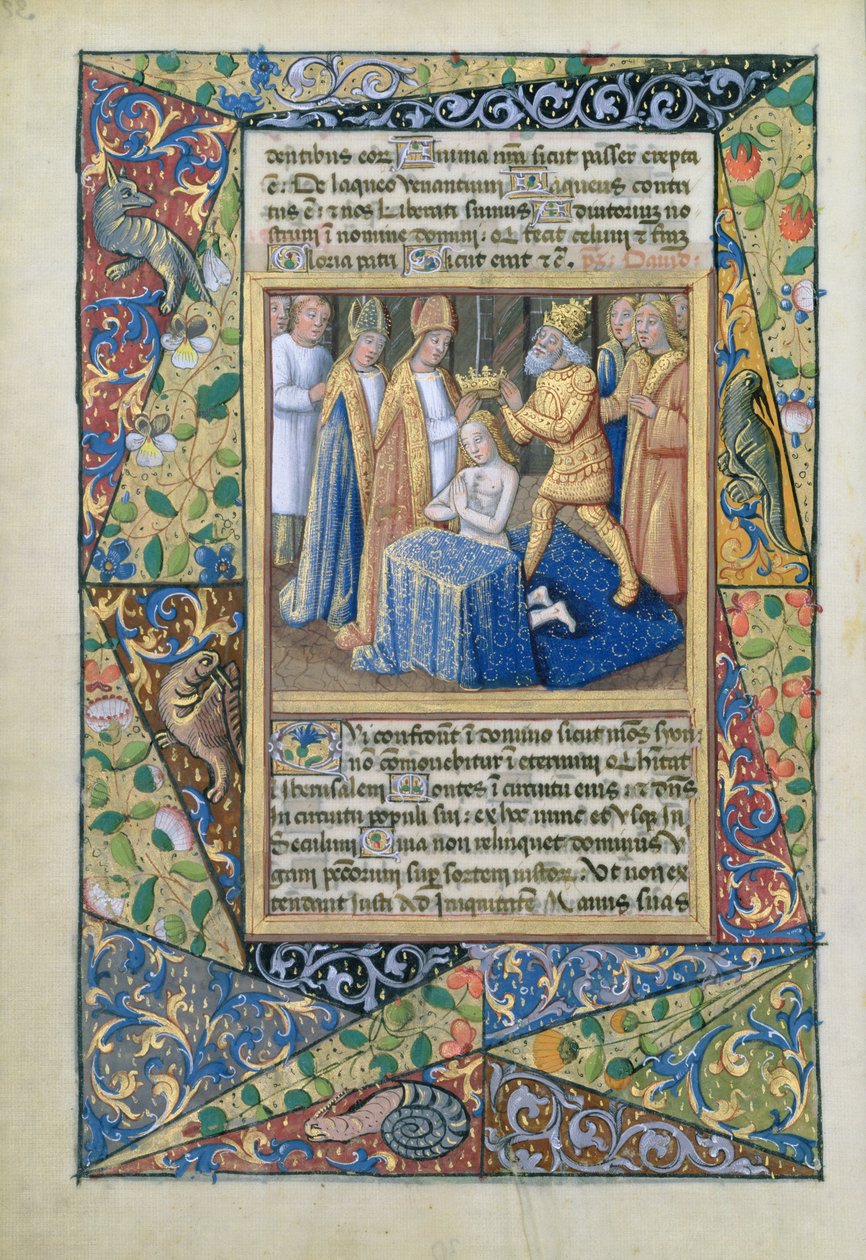 dentibus eor Anima nra sicut passer erepta
ē: De laqueo venantium Laqueus contri
tus ē: et nos Liberati sumus Adiutorium no
strum ī nomine domini: Qi fecit celum et trā
Gloria patri Sicut erat et c̄. ps: David:
Qui confidunt ī domino sicut mons syon:
non cōmovebitur ī eternum Qi hītat
ī iherusalem Montes ī circuitu eius: et dn̄s
In circuitu populi sui: ex hoc nunc et Vsqz In
Seculum Quia non relinquet dominus V
gam peccorum sup sortem iustor. Vt non ex
tendant Iusti Ad Iniquitatē Manus suas